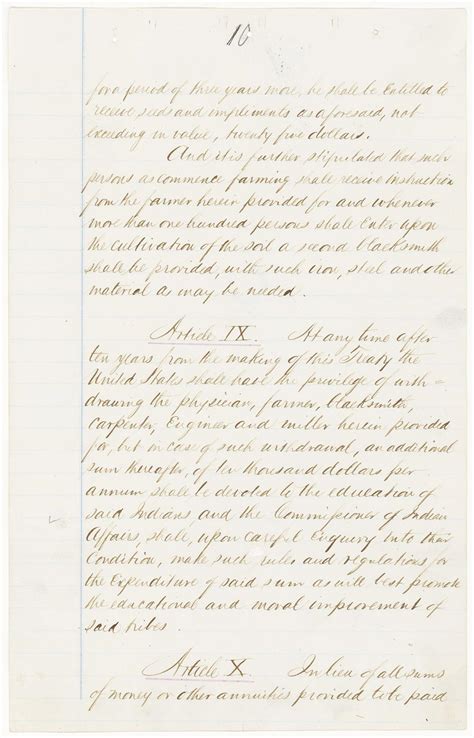 16
for a period of three years more, he shall be Entitled to
receive seeds and impliments as aforesaid, not
Exceeding in value, twenty five dollars.
And it is further stipulated that such
persons as commence farming shall receive instruction
from the farmer herein provided for and whenever
more than one hundred persons shall Enter upon
the cultivation of the soil a second blacksmith
shall be provided, with such iron, steel and other
material as may be needed.
Article IX. At any time after
ten years from the making of this Treaty the
United States shall have the privilege of with=
drawing the physician, farmer, blacksmith,
carpenter, Engineer and miller herein provided
for, but in case of such withdrawal, an additional
sum thereafter, of ten thousand dollars per
annum shall be devoted to the education of
said Indians, and the Commissioner of Indian
Affairs, shall, upon careful Enquiry into their
Condition, make such rules and regulations for
the Expenditure of said sum as will best promote
the educational and moral improvement of
said tribes.
Article X. In lieu of all sums
of money or other annuities provided to be paid